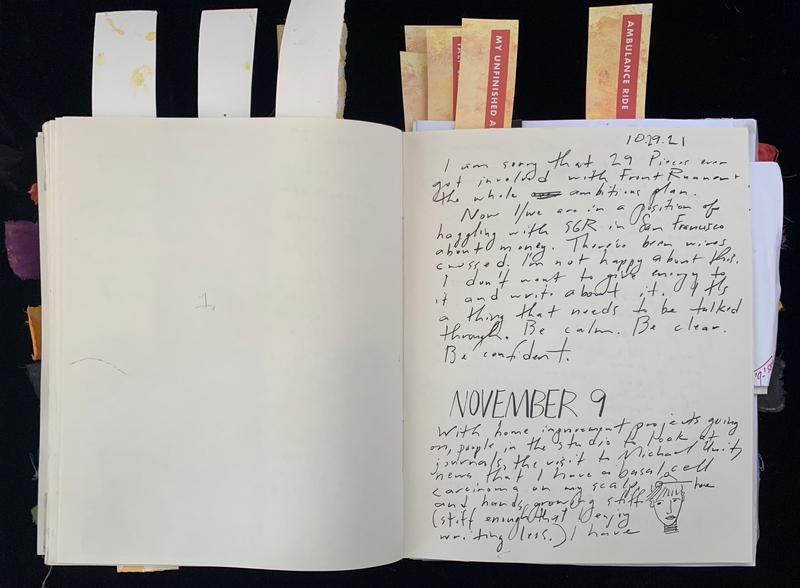 MY UNFINISHED A
AMBULANCE RIDE
1.
10.29.21
I am sorry that 29 Pieces ever
got involved with FrontRunner &
the whole ambitious plan.
Now I/we are in a position of
haggling with SGR in San Francisco
about money. There's been wires
crossed. I'm not happy about this.
I don't want to give energy to
it and write about it. It's
a thing that needs to be talked
through. Be calm. Be clear.
Be confident.
NOVEMBER 9
With home improvement projects going
on, people in the studio to look at
journals, the visit to Michael
news that I have a basal cell
carcinoma on my scalp, here
and hands growing stiff
(stiff enough that I enjoy
writing less.) I have